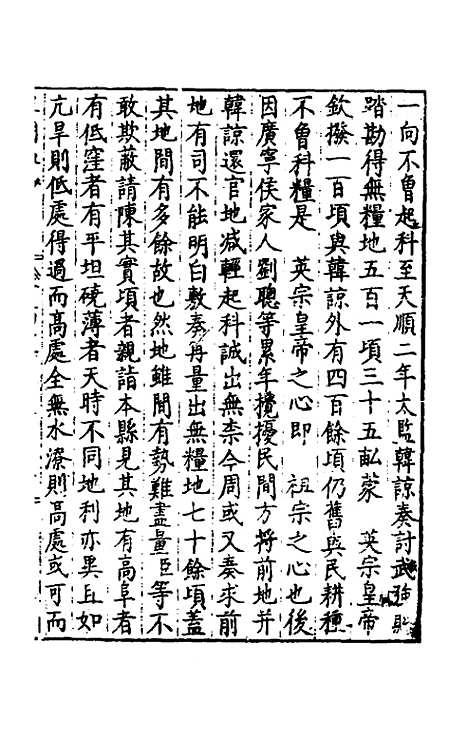 一向不曾起科至天順二年太監韓諒奏討武強縣
踏勘得無糧地五百一頃三十五畝蒙　英宗皇帝
欽撥一百頃與韓諒外有四百餘頃仍舊與民耕種
不曾科糧是　英宗皇帝之心即　祖宗之心也後
因廣寧侯家人劉聰等累年攪擾民間方將前地并
韓諒還官地減輕起科誠出無柰今周或又奏求前
地有司不能明白敷奏再量出無糧地七十餘頃蓋
其地間有多餘故也然地雖間有勢難盡量臣等不
敢欺蔽請陳其實頃者親詣本縣見其地有高阜者
有低窪者有平坦磽薄者天時不同地利亦異且如
亢旱則低處得過而高處全無水潦則高處或可而